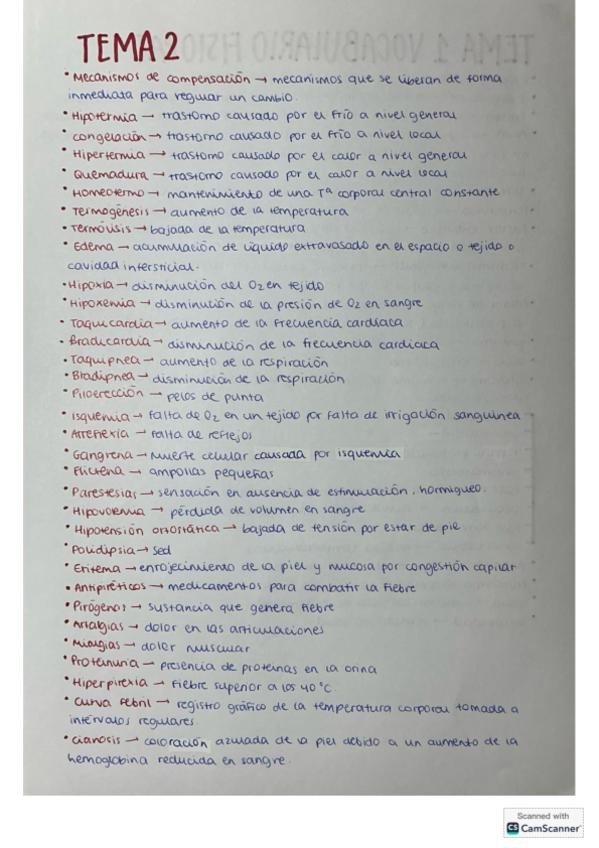 TEMA 2
• Mecanismos de compensación → mecanismos que se liberan de forma
inmediata para regular un cambio.
• Hipotermia → trastorno causado por el frío a nivel general
• congelación → trastorno causado por el frío a nivel local
• Hipertermia → trastorno causado por el calor a nivel general
• Quemadura → trastorno causado por el calor a nivel local
• Homeotermo → mantenimiento de una Tª corporal central constante
• Termogénesis → aumento de la temperatura
• Termólisis → bajada de la temperatura
• Edema → acumulación de líquido extravasado en el espacio o tejido o
cavidad intersticial.
• Hipoxia → disminución del O2 en tejido
• Hipoxemia → disminución de la presión de O2 en sangre
• Taquicardia → aumento de la frecuencia cardíaca
• Bradicardia → disminución de la frecuencia cardíaca
• Taquipnea → aumento de la respiración
• Bradipnea → disminución de la respiración
• Piloerección → pelos de punta
• Isquemia → falta de O2 en un tejido por falta de irrigación sanguínea
• Arreflexia → falta de reflejos
• Gangrena → Muerte celular causada por isquemia
• Flictena → ampollas pequeñas
• Parestesias → sensación en ausencia de estimulación, hormigueo.
• Hipovolemia → pérdida de volumen en sangre
• Hipotensión ortostática → bajada de tensión por estar de pie
• Polidipsia → sed
• Eritema → enrojecimiento de la piel y mucosa por congestión capilar
• Antipiréticos → medicamentos para combatir la fiebre
• Pirógenos → sustancia que genera fiebre
• Artralgias → dolor en las articulaciones
• Mialgias → dolor muscular
• Proteinuria → presencia de proteínas en la orina
• Hiperpirexia → fiebre superior a los 40°C.
• Curva febril → registro gráfico de la temperatura corporal tomada a
intérvalos regulares.
• cianosis → coloración azulada de la piel debido a un aumento de la
hemoglobina reducida en sangre.
Scanned with
CS CamScanner